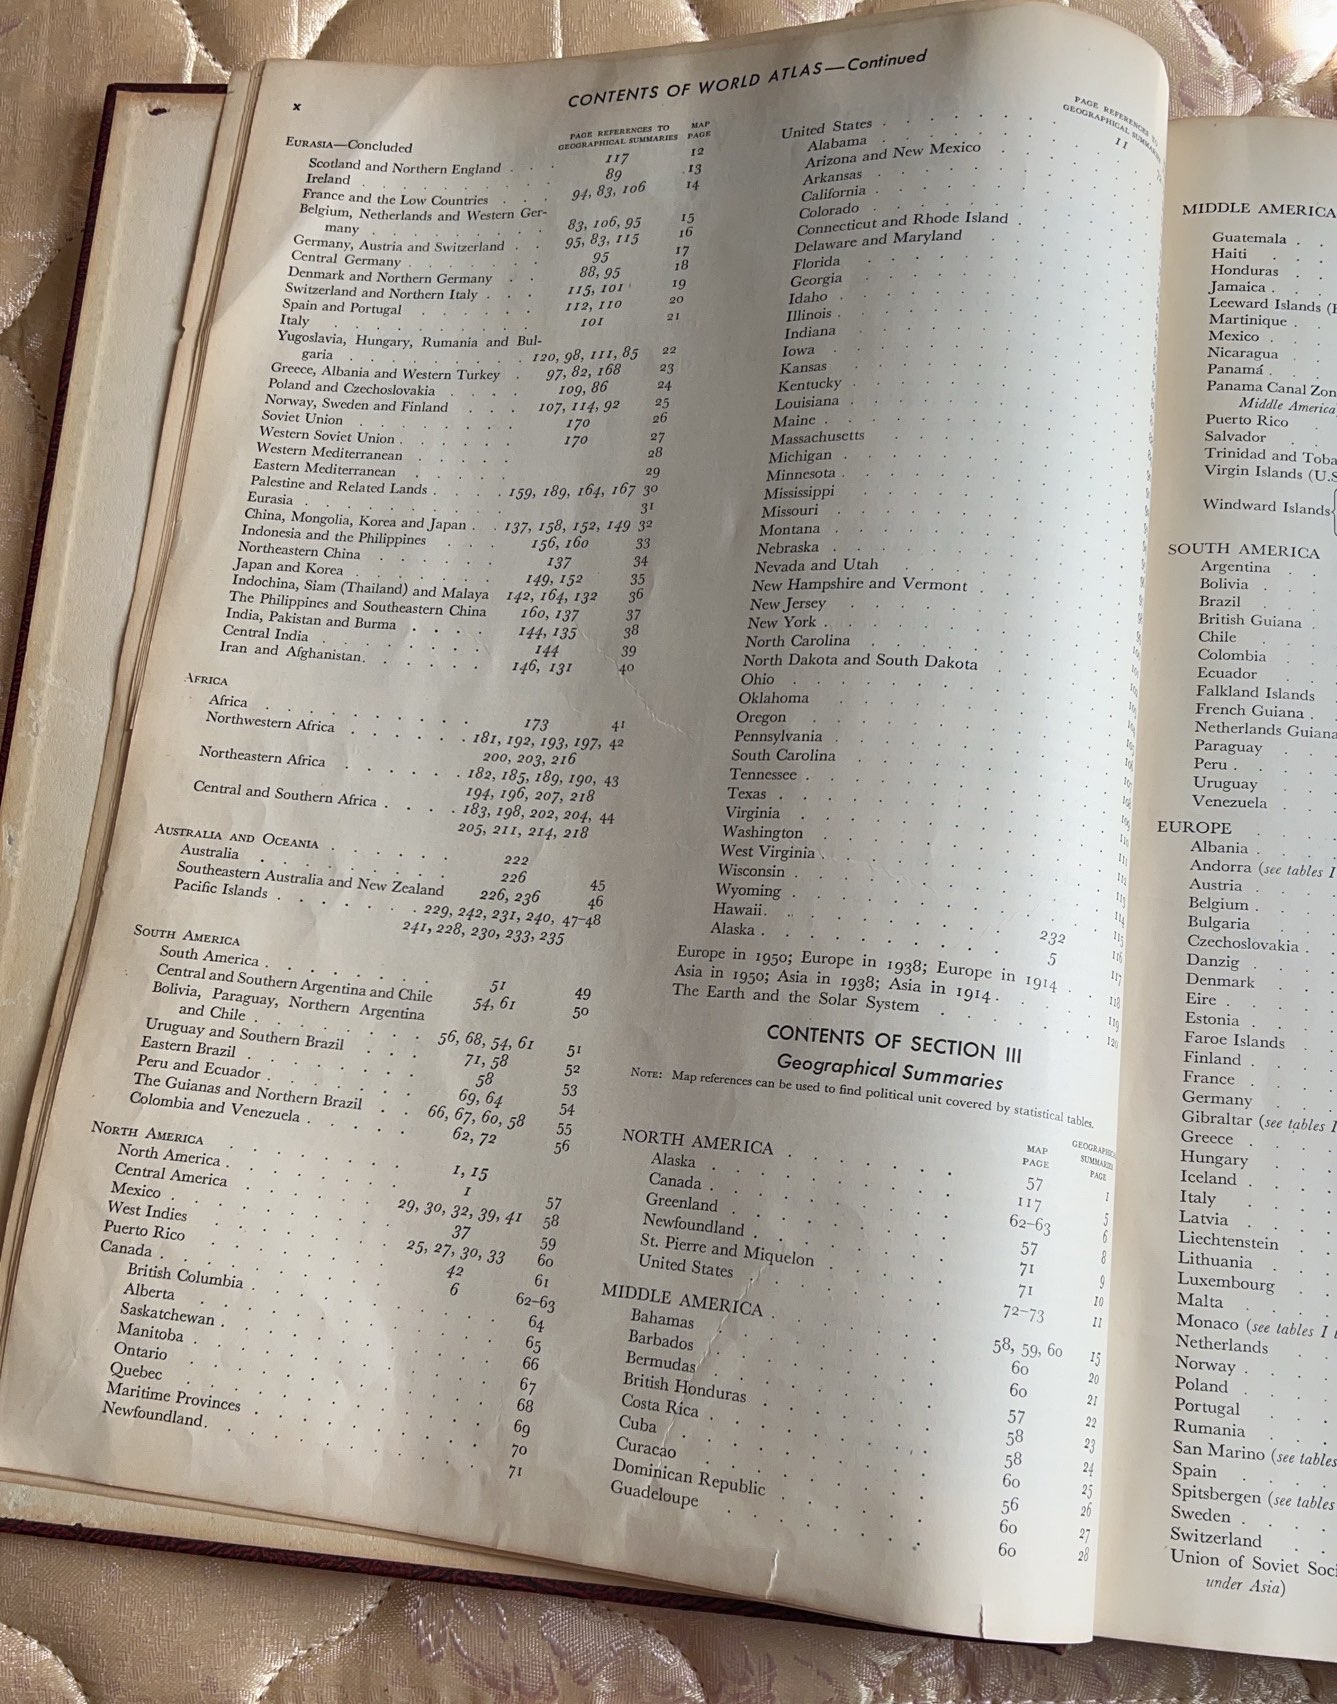 x
CONTENTS OF WORLD ATLAS—Continued
PAGE REFERENCES TO GEOGRAPHICAL SUMMARIES MAP PAGE
EURASIA—Concluded
Scotland and Northern England . . 117 12
Ireland . . . . . . 89 13
France and the Low Countries . . . 94, 83, 106 14
Belgium, Netherlands and Western Ger-
many . . . . . . 83, 106, 95 15
Germany, Austria and Switzerland . . 95, 83, 115 16
Central Germany . . . . . 95 17
Denmark and Northern Germany . . 88, 95 18
Switzerland and Northern Italy . . . 115, 101 19
Spain and Portugal . . . . . 112, 110 20
Italy . . . . . . 101 21
Yugoslavia, Hungary, Rumania and Bul-
garia . . . . . . 120, 98, 111, 85 22
Greece, Albania and Western Turkey . 97, 82, 168 23
Poland and Czechoslovakia . . . . 109, 86 24
Norway, Sweden and Finland . . . 107, 114, 92 25
Soviet Union . . . . . . 170 26
Western Soviet Union . . . . . 170 27
Western Mediterranean . . . . . 28
Eastern Mediterranean . . . . . 29
Palestine and Related Lands . . . . 159, 189, 164, 167 30
Eurasia . . . . . . 31
China, Mongolia, Korea and Japan . . 137, 158, 152, 149 32
Indonesia and the Philippines . . . 156, 160 33
Northeastern China . . . . . 137 34
Japan and Korea . . . . . 149, 152 35
Indochina, Siam (Thailand) and Malaya 142, 164, 132 36
The Philippines and Southeastern China 160, 137 37
India, Pakistan and Burma . . . . 144, 135 38
Central India . . . . . . 144 39
Iran and Afghanistan. . . . . . 146, 131 40
AFRICA
Africa . . . . . . . 173 41
Northwestern Africa . . . . . . 181, 192, 193, 197, 42
200, 203, 216
Northeastern Africa . . . . . 182, 185, 189, 190, 43
194, 196, 207, 218
Central and Southern Africa . . . . 183, 198, 202, 204, 44
205, 211, 214, 218
AUSTRALIA AND OCEANIA . . . . . 222
Australia . . . . . . 226 45
Southeastern Australia and New Zealand 226, 236 46
Pacific Islands . . . . . . 229, 242, 231, 240, 47–48
241, 228, 230, 233, 235
SOUTH AMERICA
South America . . . . . . 51 49
Central and Southern Argentina and Chile 54, 61 50
Bolivia, Paraguay, Northern Argentina
and Chile . . . . . . 56, 68, 54, 61 51
Uruguay and Southern Brazil . . . 71, 58 52
Eastern Brazil . . . . . . 58 53
Peru and Ecuador . . . . . 69, 64 54
The Guianas and Northern Brazil . . 66, 67, 60, 58 55
Colombia and Venezuela . . . . 62, 72 56
NORTH AMERICA . . . . . . 1, 15
North America . . . . . . 1 57
Central America . . . . . 29, 30, 32, 39, 41 58
Mexico . . . . . . . 37 59
West Indies . . . . . . 25, 27, 30, 33 60
Puerto Rico . . . . . . 42 61
Canada . . . . . . . 6 62–63
British Columbia . . . . . . 64
Alberta . . . . . . . 65
Saskatchewan . . . . . . 66
Manitoba . . . . . . . 67
Ontario . . . . . . . 68
Quebec . . . . . . . 69
Maritime Provinces . . . . . . 70
Newfoundland. . . . . . . 71
PAGE REFERENCES TO GEOGRAPHICAL SUMMARIES
United States . . . . . . 11
Alabama
Arizona and New Mexico
Arkansas
California
Colorado
Connecticut and Rhode Island
Delaware and Maryland
Florida
Georgia
Idaho
Illinois
Indiana
Iowa
Kansas
Kentucky
Louisiana
Maine
Massachusetts
Michigan
Minnesota
Mississippi
Missouri
Montana
Nebraska
Nevada and Utah
New Hampshire and Vermont
New Jersey
New York
North Carolina
North Dakota and South Dakota
Ohio
Oklahoma
Oregon
Pennsylvania
South Carolina
Tennessee
Texas
Virginia
Washington
West Virginia
Wisconsin
Wyoming
Hawaii. . . . . . . 232
Alaska . . . . . . . 5
Europe in 1950; Europe in 1938; Europe in 1914 . .
Asia in 1950; Asia in 1938; Asia in 1914 . . .
The Earth and the Solar System . . . . . 120
CONTENTS OF SECTION III
Geographical Summaries
NOTE: Map references can be used to find political unit covered by statistical tables.
MAP PAGE GEOGRAPHICAL SUMMARIES PAGE
NORTH AMERICA . . . . . 57 1
Alaska . . . . . . 117 5
Canada . . . . . . 62–63 6
Greenland . . . . . . 57 8
Newfoundland . . . . . 71 9
St. Pierre and Miquelon . . . . 71 10
United States . . . . . 72–73 11
MIDDLE AMERICA . . . . . 58, 59, 60 15
Bahamas . . . . . . 60 20
Barbados . . . . . . 60 21
Bermudas . . . . . . 57 22
British Honduras . . . . . 58 23
Costa Rica . . . . . . 58 24
Cuba . . . . . . . 60 25
Curacao . . . . . . 56 26
Dominican Republic . . . . . 60 27
Guadeloupe . . . . . . 60 28
MIDDLE AMERICA
Guatemala . .
Haiti . .
Honduras . .
Jamaica . .
Leeward Islands
Martinique .
Mexico . .
Nicaragua
Panamá . .
Panama Canal
Middle America
Puerto Rico
Salvador . .
Trinidad and
Virgin Islands
Windward Islands
SOUTH AMERICA
Argentina . .
Bolivia . .
Brazil . .
British Guiana .
Chile . .
Colombia . .
Ecuador . .
Falkland Islands
French Guiana .
Netherlands
Paraguay . .
Peru . .
Uruguay . .
Venezuela . .
EUROPE . .
Albania . .
Andorra (see tables
Austria . .
Belgium . .
Bulgaria . .
Czechoslovakia .
Danzig . .
Denmark . .
Eire . .
Estonia . .
Faroe Islands
Finland . .
France . .
Germany . .
Gibraltar (see tables
Greece . .
Hungary . .
Iceland . .
Italy . .
Latvia . .
Liechtenstein . .
Lithuania . .
Luxembourg . .
Malta . .
Monaco (see tables
Netherlands . .
Norway . .
Poland . .
Portugal . .
Rumania . .
San Marino (see tables
Spain . .
Spitsbergen (see tables
Sweden . .
Switzerland . .
Union of Soviet
under Asia)